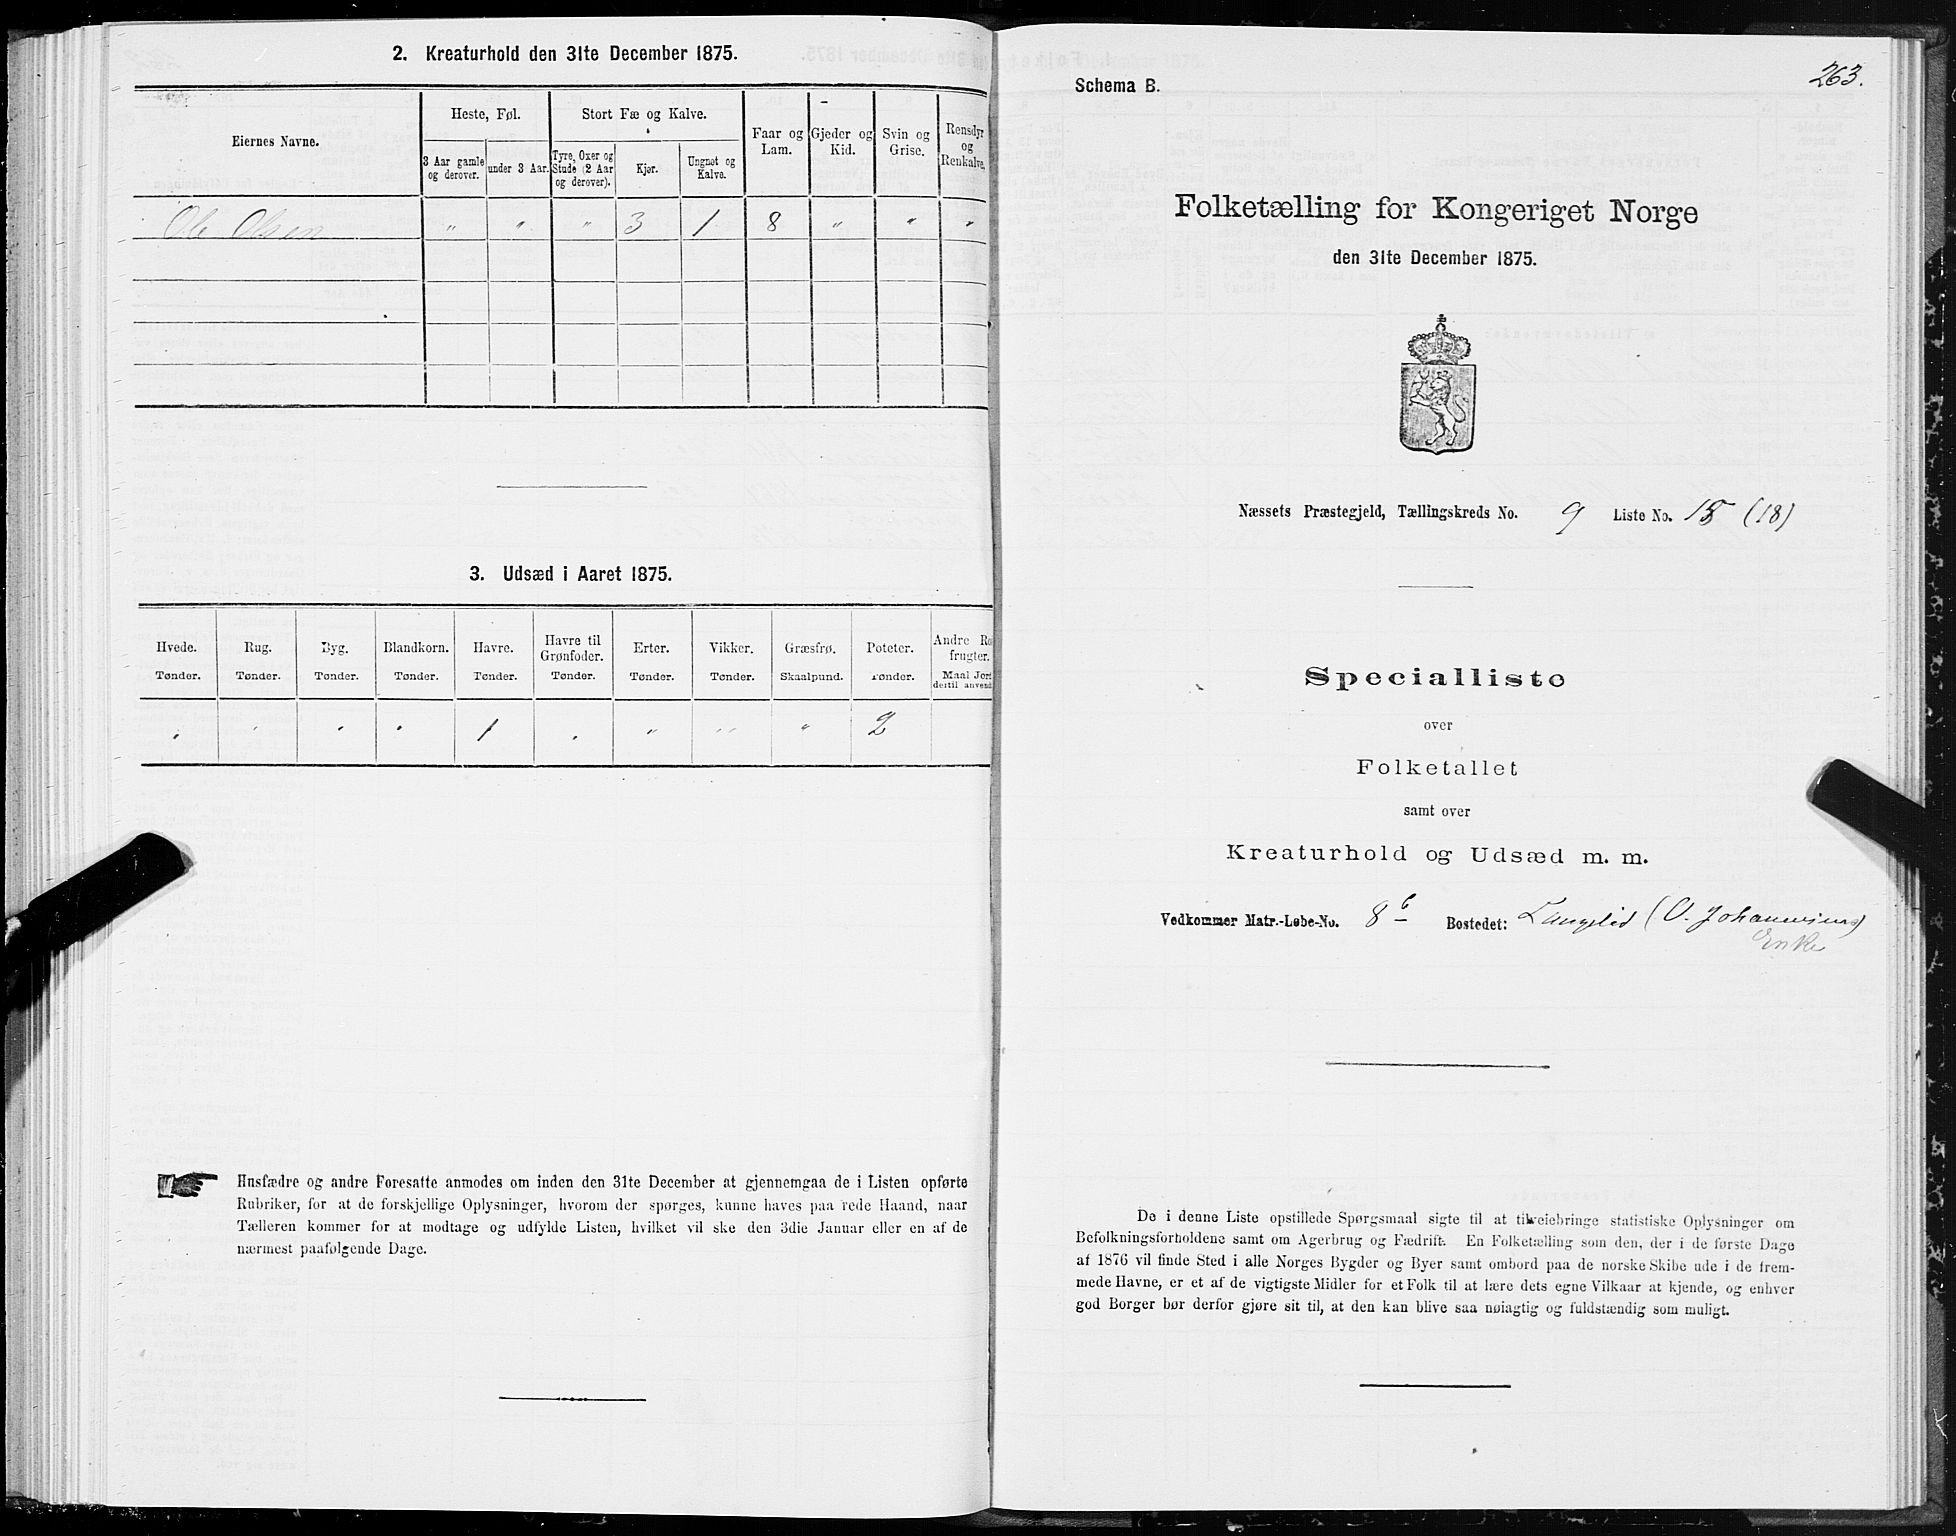 2. Kreaturhold den 31te December 1875.
Eiernes Navne.
Heste, Føl.
Stort Fæ og Kalve.
Faar og Lam.
Gjeder og Kid.
Svin og Grise.
Rensdyr og Renkalve.
3 Aar gamle og derover.
under 3 Aar.
Tyre, Oxer og Stude (2 Aar og derover).
Kjør.
Ungnøt og Kalve.
Ole Olsen " " " 3 1 8 " " "
3. Udsæd i Aaret 1875.
Hvede. Rug. Byg. Blandkorn. Havre. Havre til Grønfoder. Erter. Vikker. Græsfrø. Poteter. Andre Ro frugter.
Tønder. Tønder. Tønder. Tønder. Tønder. Tønder. Tønder. Tønder. Skaalpund. Tønder. Maal Jord dertil anvend
" " " " 1 " " " " 2
Husfædre og andre Foresatte anmodes om inden den 31te December at gjennemgaa de i Listen opførte
Rubriker, for at de forskjellige Oplysninger, hvorom der spørges, kunne haves paa rede Haand, naar
Tælleren kommer for at modtage og udfylde Listen, hvilket vil ske den 3die Januar eller en af de
nærmest paafølgende Dage.
263.
Schema B.
Folketælling for Kongeriget Norge
den 31te December 1875.
Næssets Præstegjeld, Tællingskreds No. 9 Liste No. 15 (18)
Specialliste
over
Folketallet
samt over
Kreaturhold og Udsæd m. m.
Vedkommer Matr.-Løbe-No. 8 b Bostedet: Langelid (O. Johannesens)
Enke
De i denne Liste opstillede Spørgsmaal sigte til at tilveiebringe statistiske Oplysninger om
Befolkningsforholdene samt om Agerbrug og Fædrift. En Folketælling som den, der i de første Dage
af 1876 vil finde Sted i alle Norges Bygder og Byer samt ombord paa de norske Skibe ude i de frem-
mede Havne, er et af de vigtigste Midler for et Folk til at lære dets egne Vilkaar at kjende, og enhver
god Borger bør derfor gjøre sit til, at den kan blive saa nøiagtig og fuldstændig som muligt.